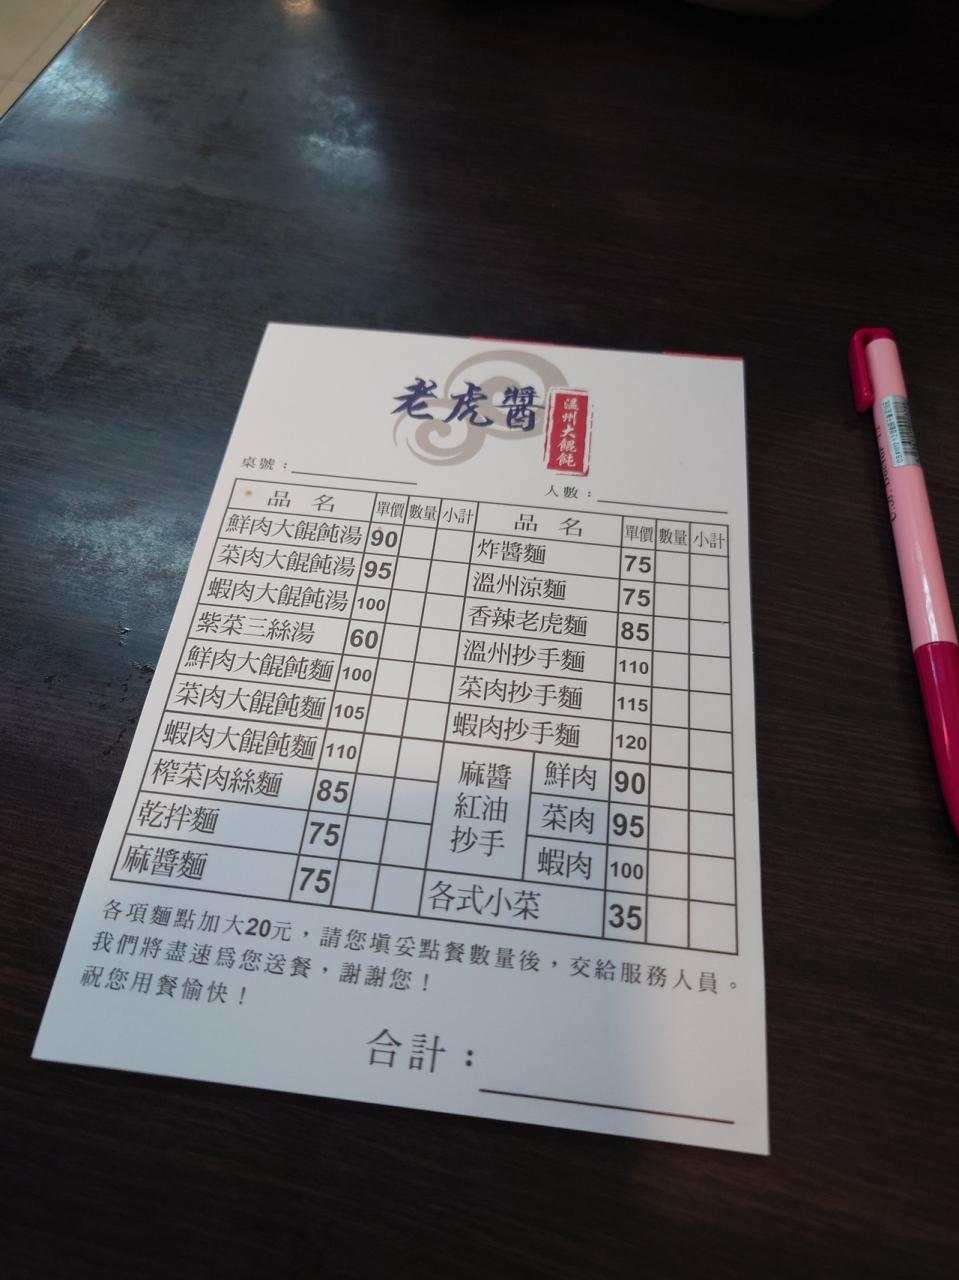 老虎醬
溫州大餛飩
桌號：
人數：
品名 單價 數量 小計
鮮肉大餛飩湯 90
菜肉大餛飩湯 95
蝦肉大餛飩湯 100
紫菜三絲湯 60
鮮肉大餛飩麵 100
菜肉大餛飩麵 105
蝦肉大餛飩麵 110
榨菜肉絲麵 85
乾拌麵 75
麻醬麵 75
品名 單價 數量 小計
炸醬麵 75
溫州涼麵 75
香辣老虎麵 85
溫州抄手麵 110
菜肉抄手麵 115
蝦肉抄手麵 120
麻醬
紅油
抄手
鮮肉 90
菜肉 95
蝦肉 100
各式小菜 35
各項麵點加大20元，請您填妥點餐數量後，交給服務人員。
我們將盡速為您送餐，謝謝您！
祝您用餐愉快！
合計：